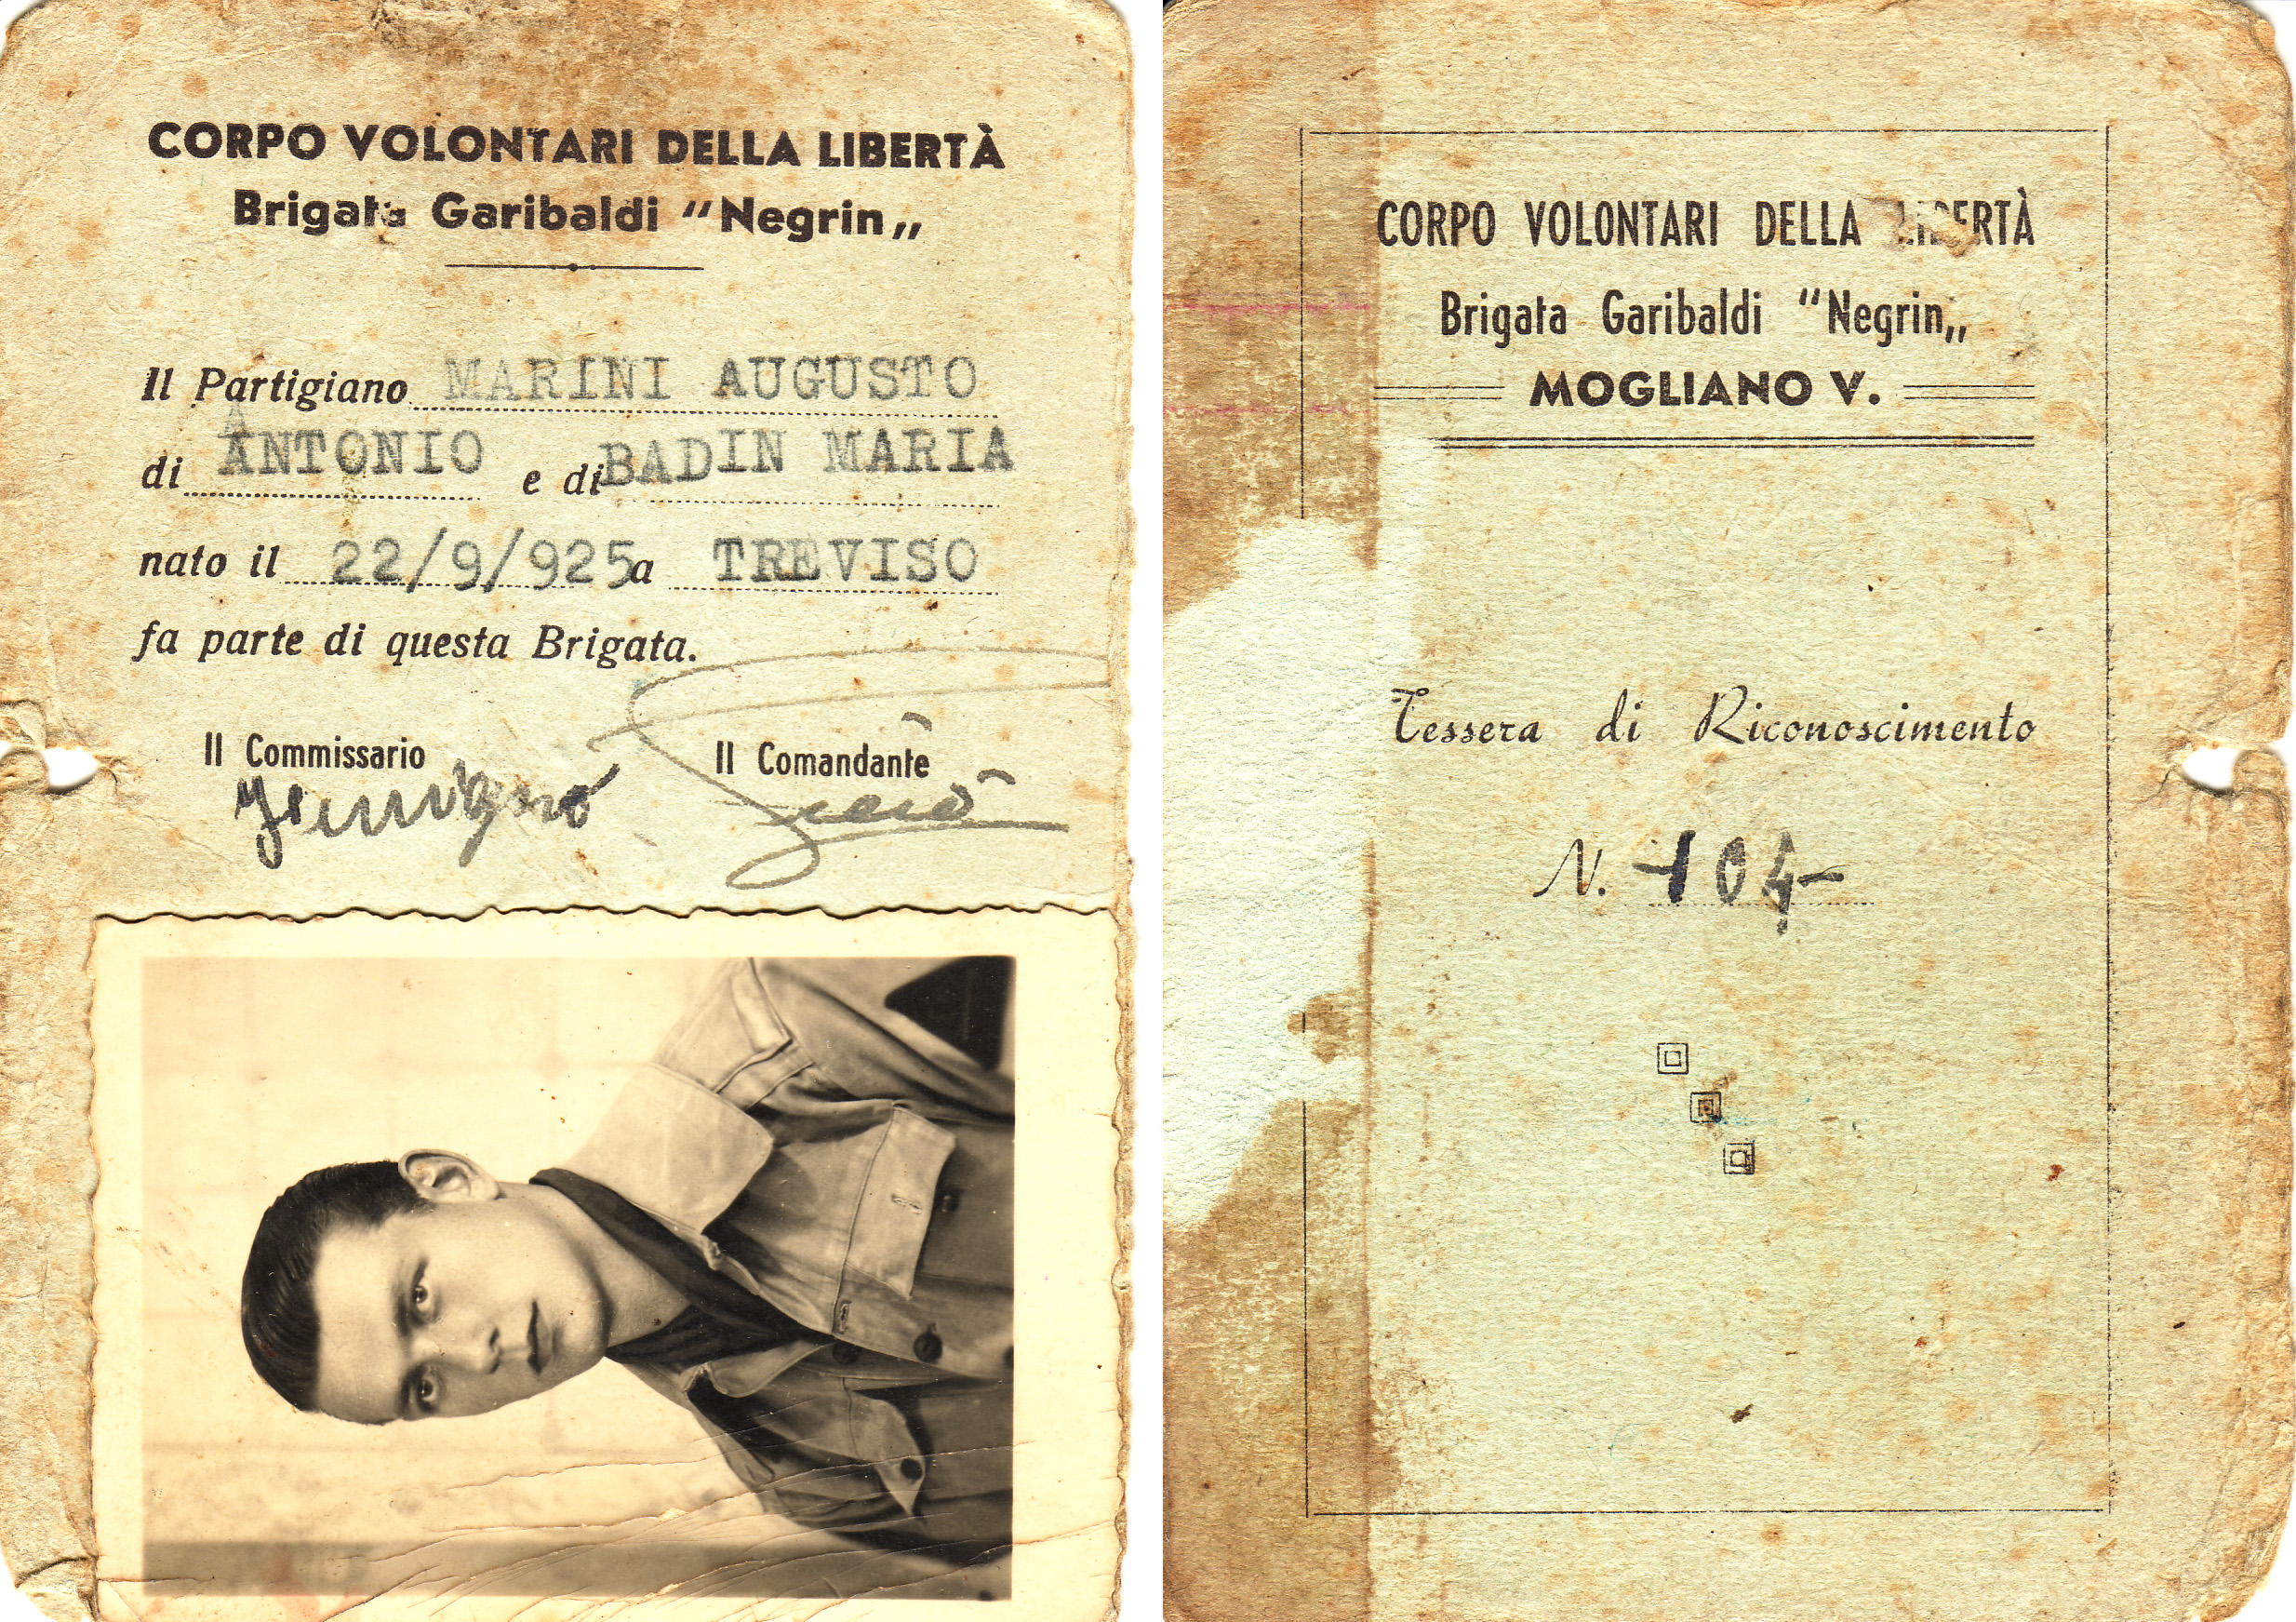 CORPO VOLONTARI DELLA LIBERTÀ
Brigata Garibaldi "Negrin„
Il Partigiano MARINI AUGUSTO
di ANTONIO e di BADIN MARIA
nato il 22/9/925 a TREVISO
fa parte di questa Brigata.
Il Commissario Il Comandante
CORPO VOLONTARI DELLA LIBERTÀ
Brigata Garibaldi "Negrin„
MOGLIANO V.
Tessera di Riconoscimento
N. -104-